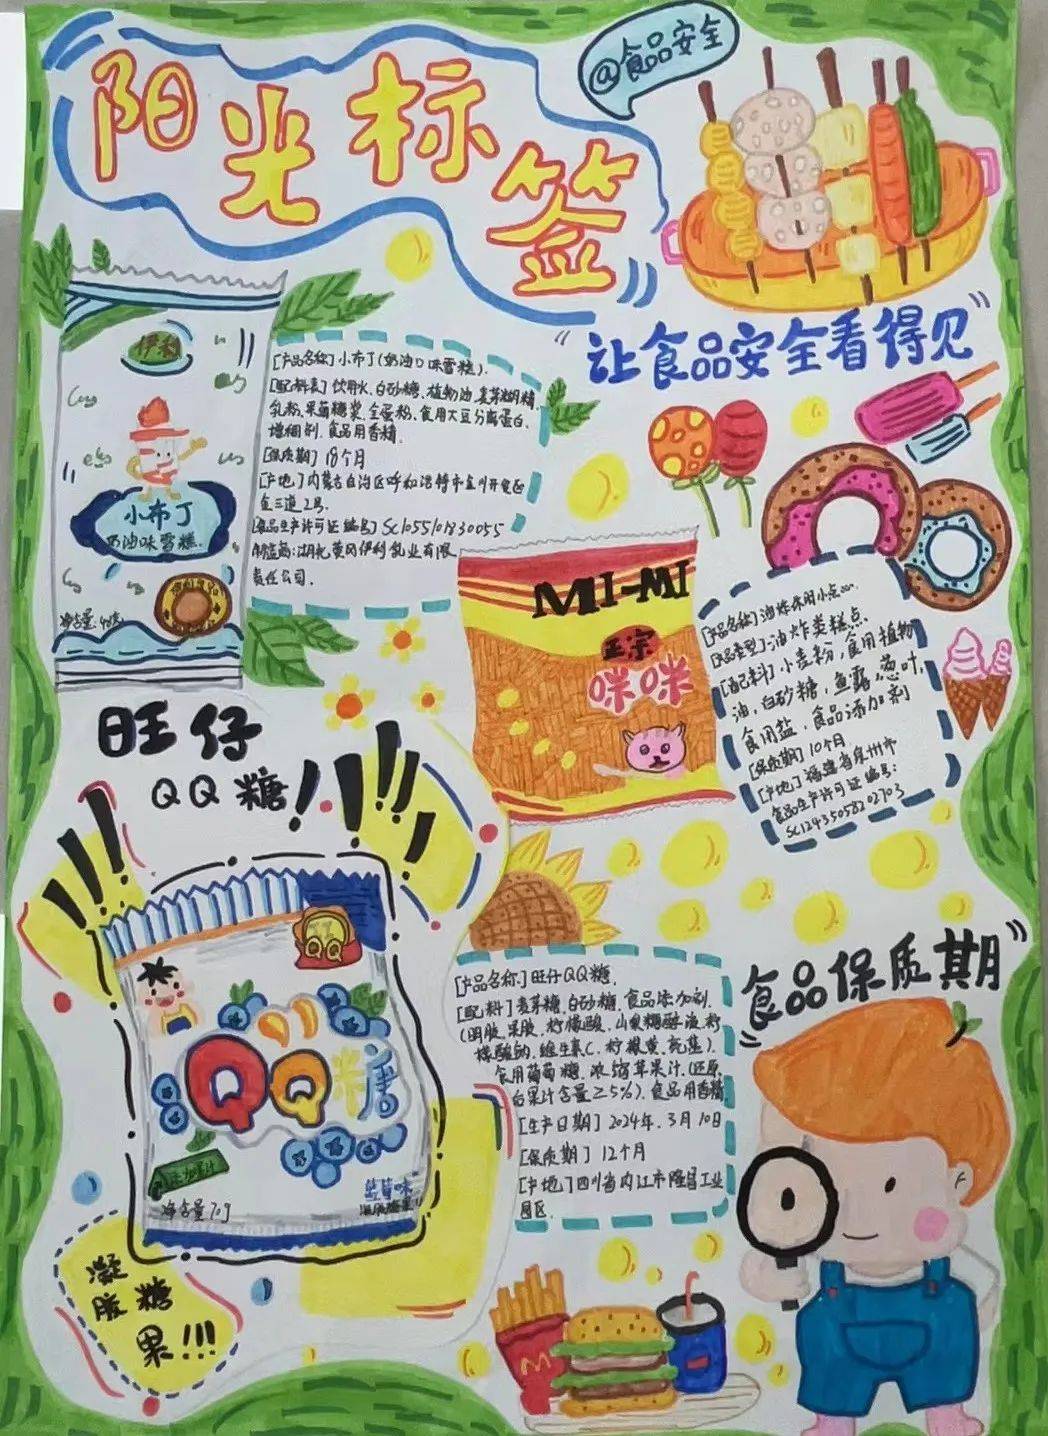 阳光标签
@食品安全
"让食品安全看得见"
伊利
小布丁
奶油味雪糕.
净含量:40克
[产品名称]小布丁(奶油口味雪糕).
[配料表]饮用水,白砂糖,植物油,麦芽糊精
乳粉.果葡糖浆.全蛋粉.食用大豆分离蛋白.
增稠剂.食品用香精.
[保质期]18个月
[产地]内蒙古自治区呼和浩特市金川开发区
金三道2号.
[食品生产许可证编号]SC10551
制造商:湖北黄冈伊利乳业有限
责任公司.
MI-MI
正宗
咪咪
[产品名称]油炸休闲小点心.
[产品类型]油炸类糕点
[配料]小麦粉,食用植物
油,白砂糖,鱼露,葱叶,
食用盐,食品添加剂
[保质期]10个月
[产地]福建省泉州市
食品生产许可证编号:
SC12435058202703
旺仔
QQ糖!
QQ
QQ糖
净含量70g
蓝莓味
凝
胶糖
果!!!
[产品名称]旺仔QQ糖.
[配料]麦芽糖.白砂糖.食品添加剂.
(明胶.果胶.柠檬酸.山梨糖醇液.柠
檬酸钠.维生素C.柠檬黄.亮蓝).
食用葡萄糖.浓缩苹果汁.(还原
台果汁含量≥5%).食品用香精
[生产日期]2024年.3月10日
[保质期]12个月
[产地]四川省内江市隆昌工业
园区.
"食品保质期"